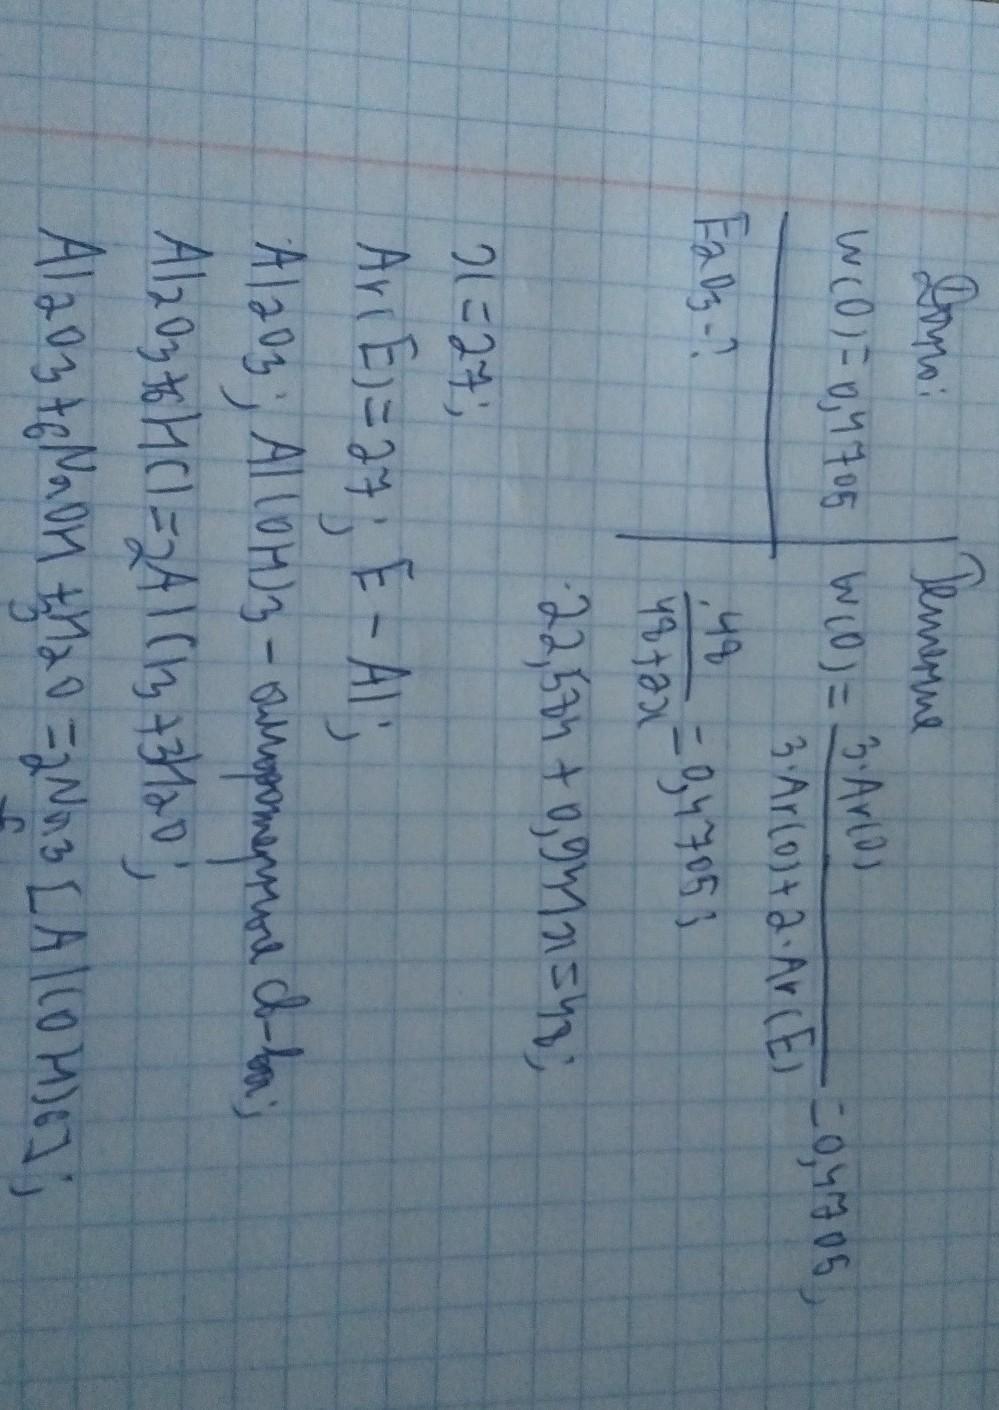 Дано: Решение
w(O)=0,4705 w(O)=3·Ar(O)/3·Ar(O)+2·Ar(E)=0,4705;
E2O3-? 48/48+2x=0,4705;
22,584+0,941x=48;
x=27;
Ar(E)=27; E-Al;
Al2O3; Al(OH)3 - амфотерные в-ва;
Al2O3+6HCl=2AlCl3+3H2O;
Al2O3+6NaOH+3H2O=2Na3[Al(OH)6];